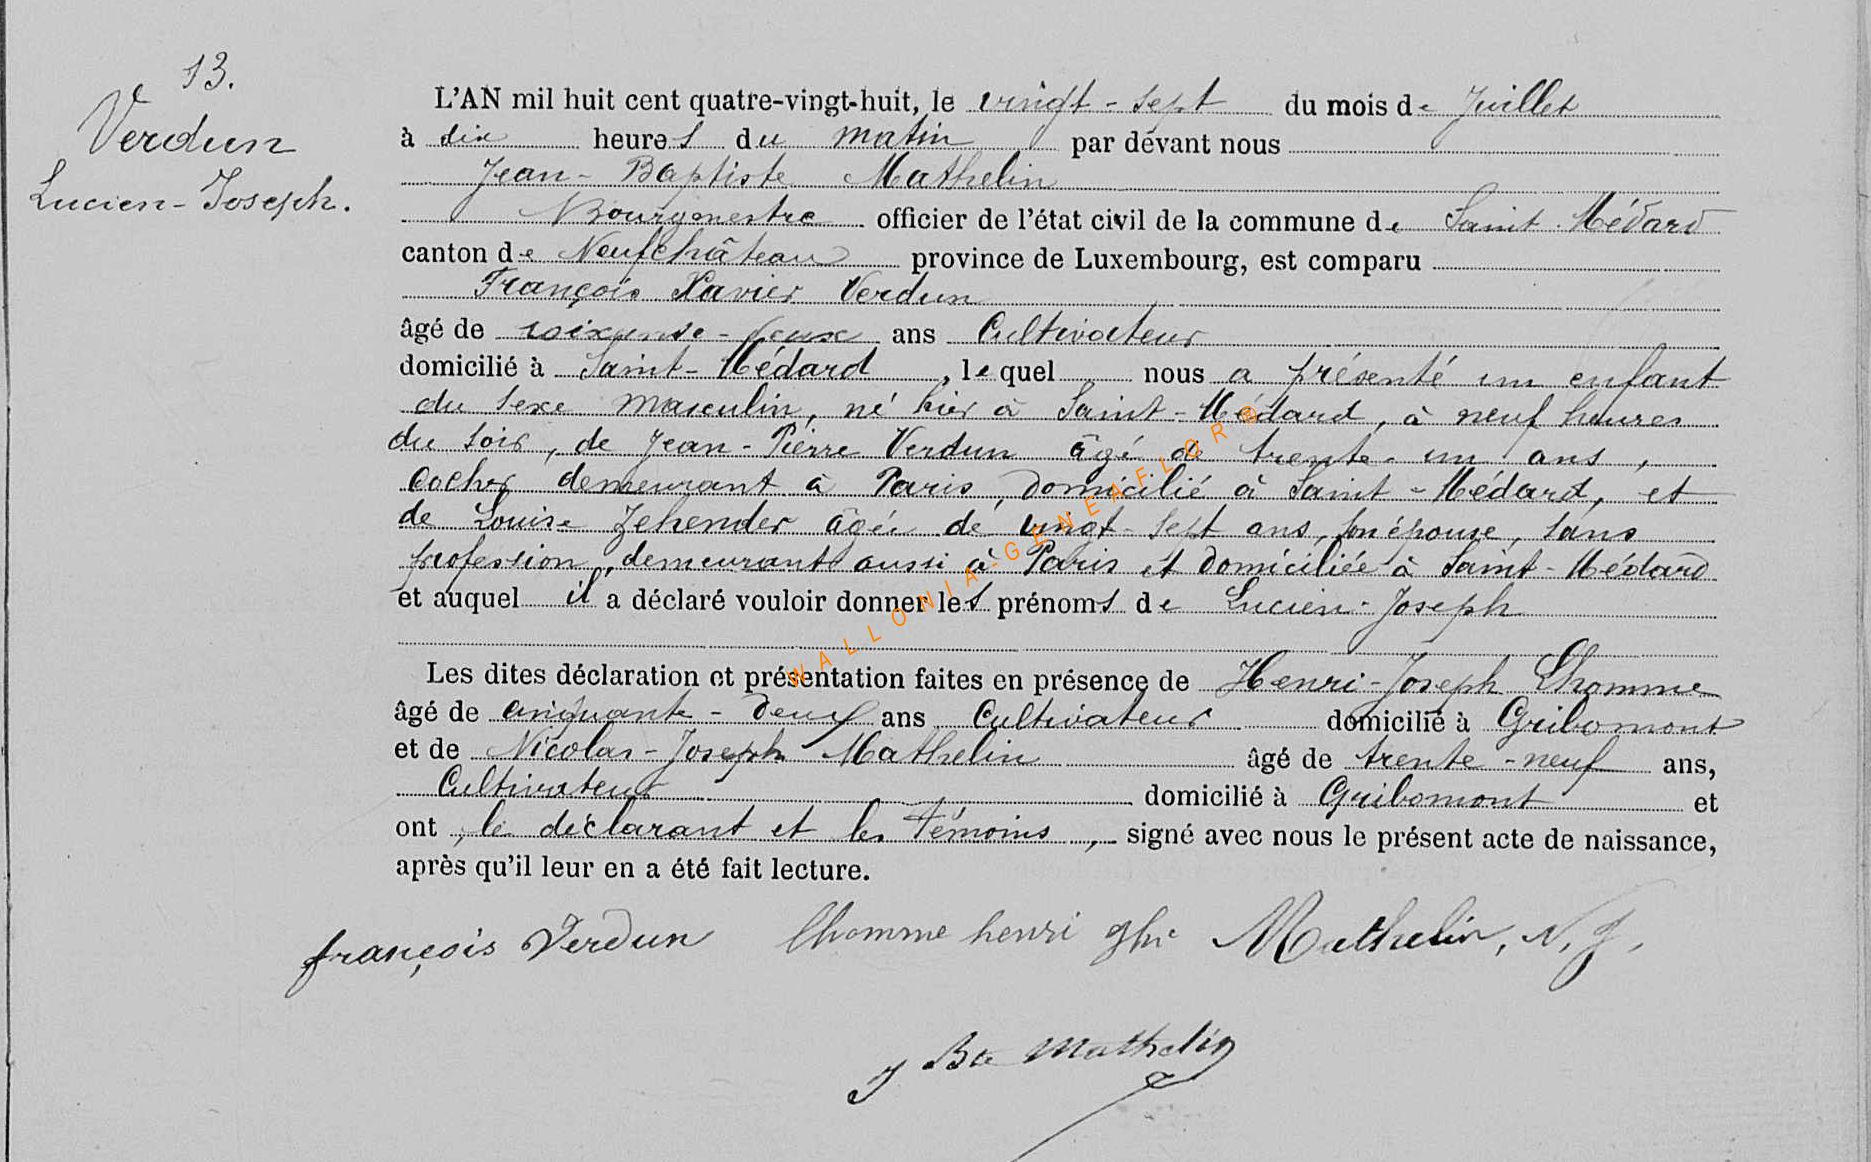 13.
Verdun
Lucien-Joseph.
L'AN mil huit cent quatre-vingt-huit, le vingt-sept du mois de Juillet
à dix heures du matin par devant nous
Jean-Baptiste Mathelin
Bourgmestre officier de l'état civil de la commune de Saint-Médard
canton de Neufchâteau province de Luxembourg, est comparu
François Xavier Verdun
âgé de soixante-deux ans Cultivateur
domicilié à Saint-Médard, lequel nous a présenté un enfant
du sexe masculin, né hier à Saint-Médard, à neuf heures
du soir, de Jean-Pierre Verdun âgé de trente-un ans,
cocher demeurant à Paris, domicilié à Saint-Médard, et
de Louise Zehender âgée de vingt-sept ans, son épouse, sans
profession, demeurant aussi à Paris et domiciliée à Saint-Médard
et auquel il a déclaré vouloir donner les prénoms de Lucien-Joseph
WALLONIA-GENEAFLOR®
Les dites déclaration et présentation faites en présence de Henri-Joseph Lhomme
âgé de cinquante-deux ans Cultivateur domicilié à Gribomont
et de Nicolas-Joseph Mathelin âgé de trente-neuf ans,
Cultivateur domicilié à Gribomont et
ont, le déclarant et les témoins, signé avec nous le présent acte de naissance,
après qu'il leur en a été fait lecture.
françois Verdun lhomme henri Jph Mathelin, N. J.
J Bte Mathelin